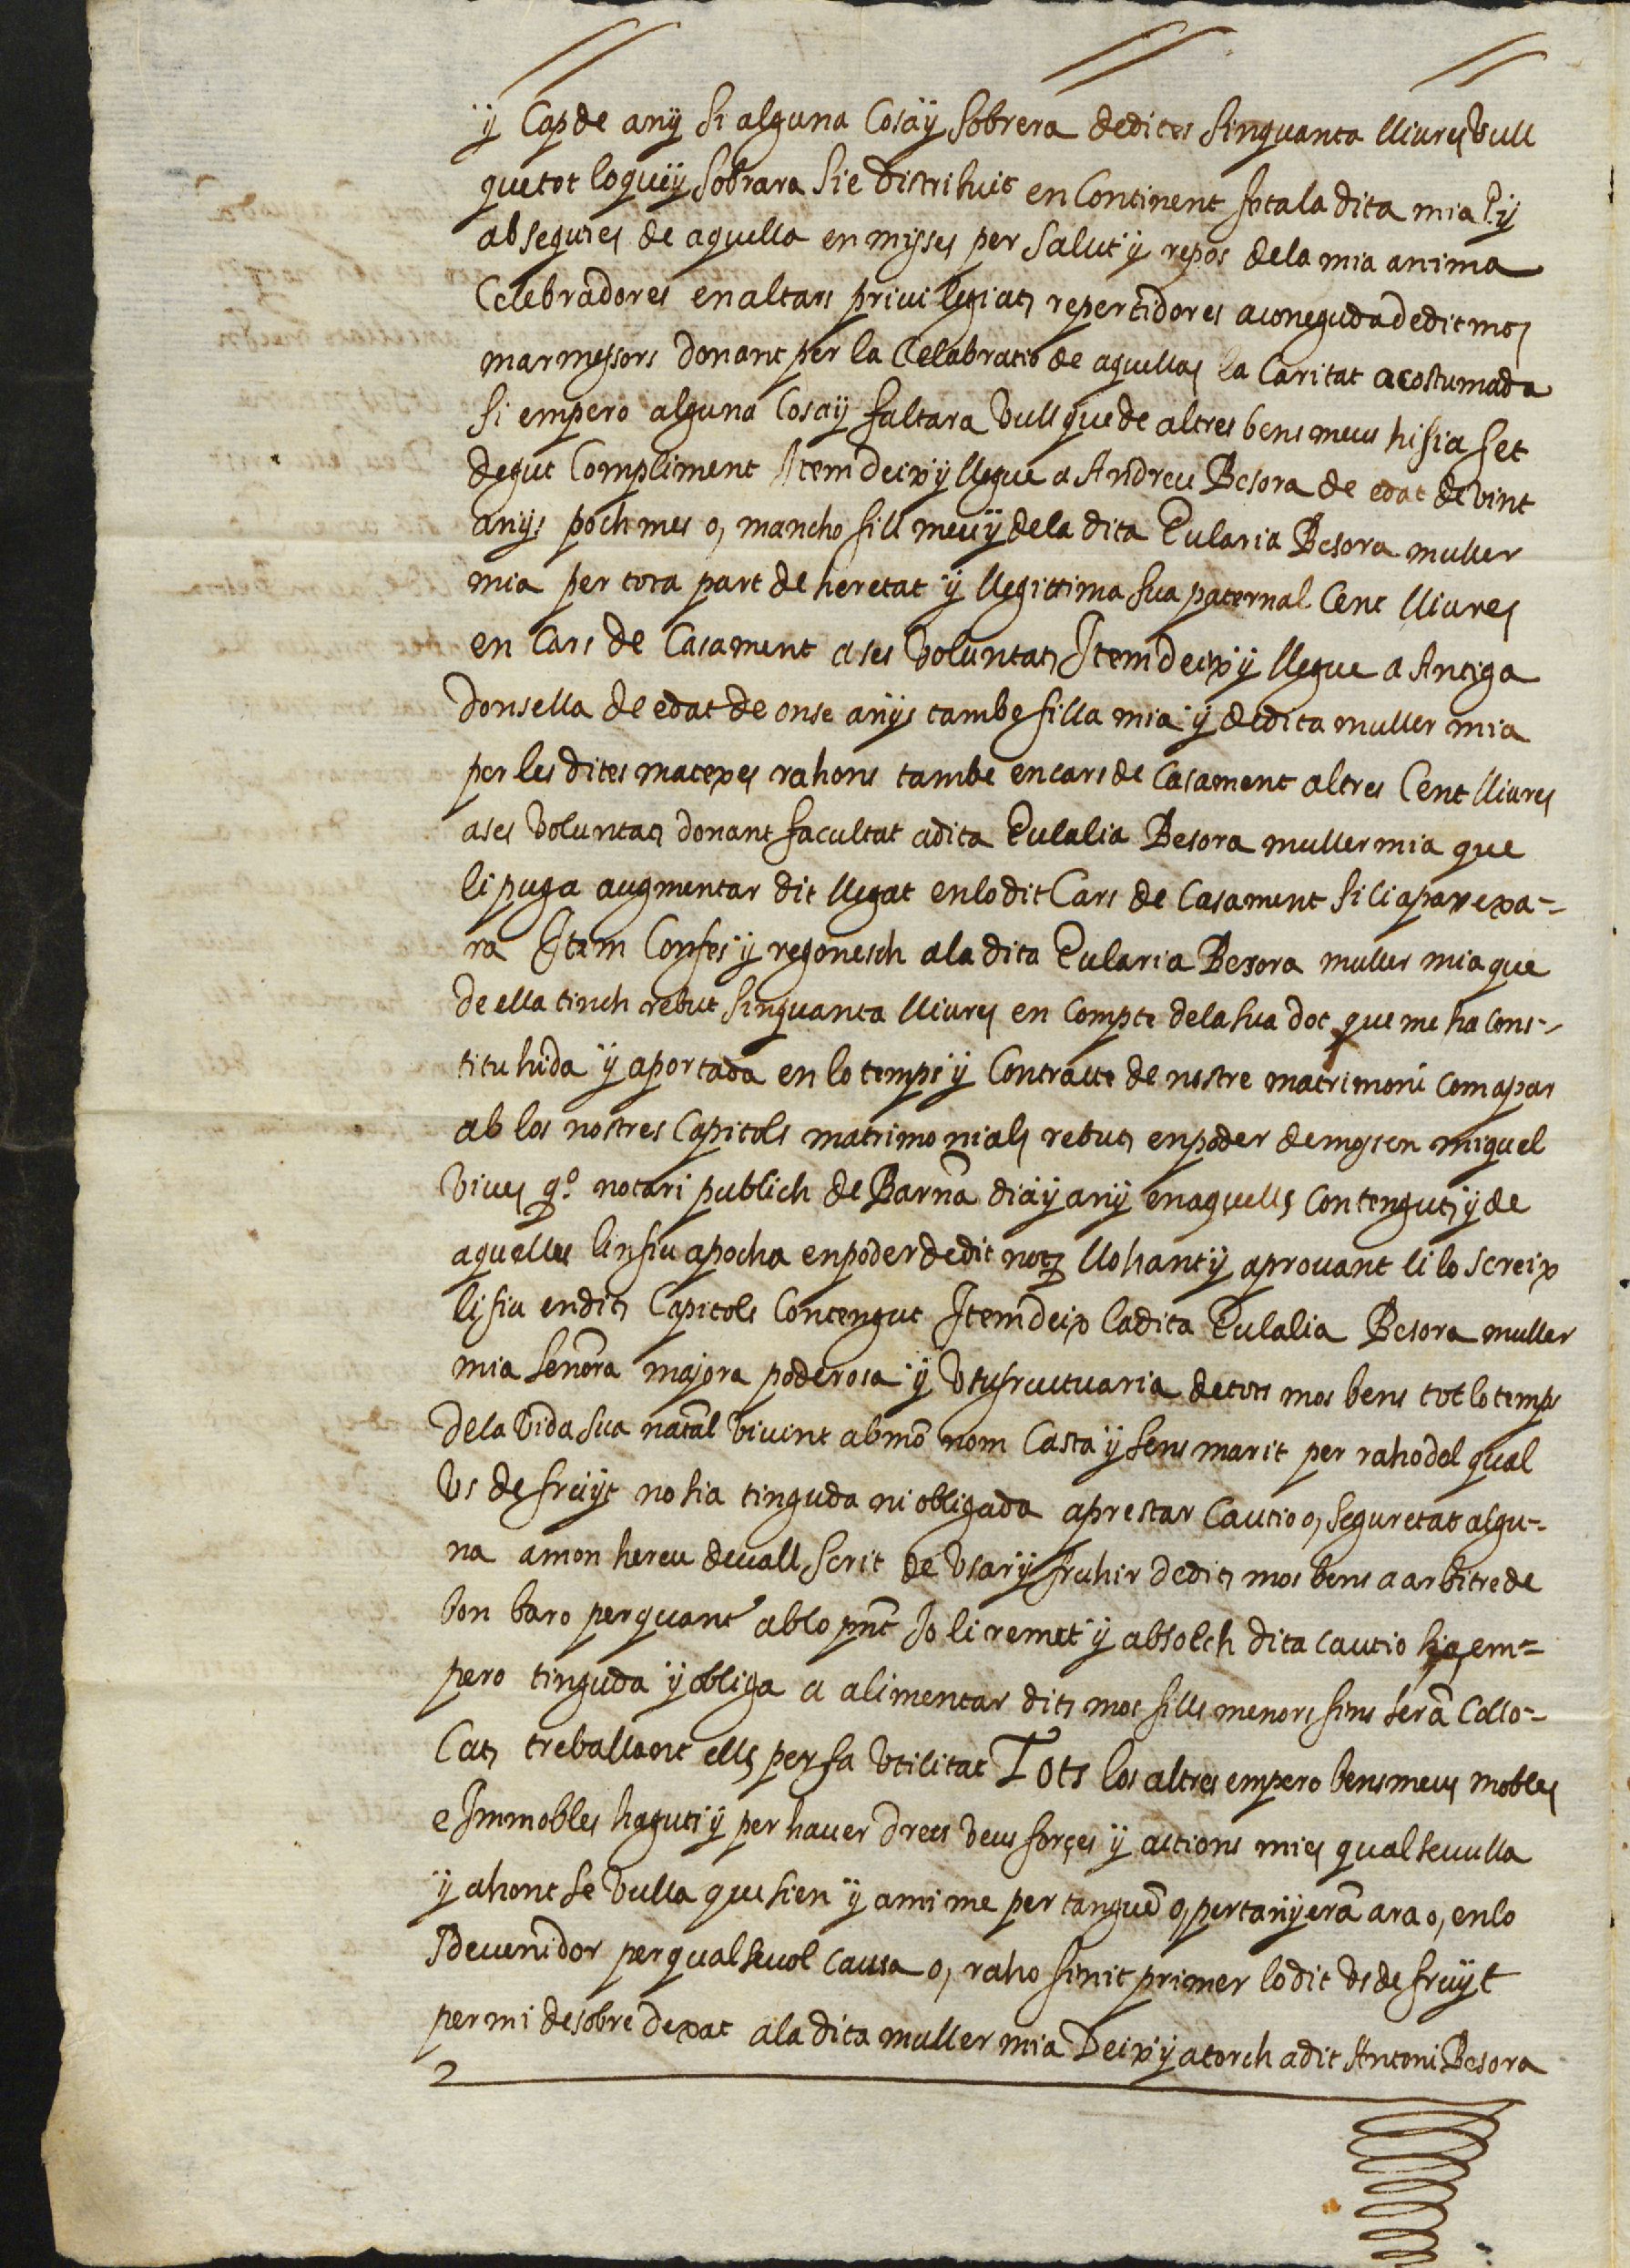 ÿ Cap de anÿ Si alguna Cosaÿ sobrera dedites Sinquanta lliures Vull
quetot loqueÿ sobrara sie distribuit en Continent feta la dita mia ÿ
absequies de aquella en misses per Salut ÿ repos dela mia anima
Celebradores en altars privilegiats repertidores aconeguda dedit mos
marmessors donant per la Celabratio de aquellas la Caritat acostumada
Si empero alguna Cosaÿ faltara Vull que de altres bens meus hi sia fet
degut Compliment Item deix ÿ llegue a Andreu Besora de edat de vint
anÿs poch mes o, mancho fill meu ÿ dela dita Eularia Besora muller
mia per tota part de heretat ÿ llegittima sua paternal Cent lliures
en Cars de Casament a ses Voluntats Item deix ÿ llegue a Antiga
donsella de edat de onse anÿs tambe filla mia ÿ dedita muller mia
per les dites matexes rahons tambe en cars de Casament altres Cent lliures
a ses Voluntats donant facultat a dita Eulalia Besora muller mia que
li puga augmentar dit llegat en lo dit Cars de Casament si li aparexa-
ra Item Confes ÿ regonesch ala dita Eularia Besora muller mia que
de ella tinch rebut Sinquanta lliures en Compte dela sua dot que me ha Cons-
tituhida ÿ aportada en lo temps ÿ Contracte de nostre matrimoni com apar
ab los nostres Capitols matrimonials rebuts en poder de mossen miquel
Vives qº notari publich de Barna dia ÿ anÿ en aquells Contenguts ÿ de
aquelles lin fiu apocha en poder dedit not llohant ÿ aprovant li lo screix
li fiu en dits Capitols Contengut Item deix la dita Eulalia Besora muller
mia Senora majora poderosa ÿ Usufructuaria de tots mos bens tot lo temps
dela Vida sua natal vivint ab mo nom Casta ÿ sens marit per raho del qual
Us de fruÿt no sia tinguda ni obligada a prestar Cautio o, seguretat algu-
na a mon hereu devall scrit de Usar ÿ fruhir dedits mos bens a arbitre de
bon baro per quant ab lo pnt Jo li remet ÿ absolch dita cautio sia em-
pero tinguda ÿ obliga a alimentar dits mos fills menors fins sera Collo-
Cats treballant ells per sa Utilitat Tots los altres empero bens meus mobles
e Immobles haguts ÿ per haver drets veus forçes ÿ actions mies qualsevulla
ÿ ahont se Vulla que sien ÿ ami me pertangue o, pertanÿera ara o, en lo
Sdevenidor per qualsevol Causa o, raho finit primer lo dit Us de fruÿt
per mi desobre dexat ala dita muller mia Deix ÿ atorch a dit Antoni Besora